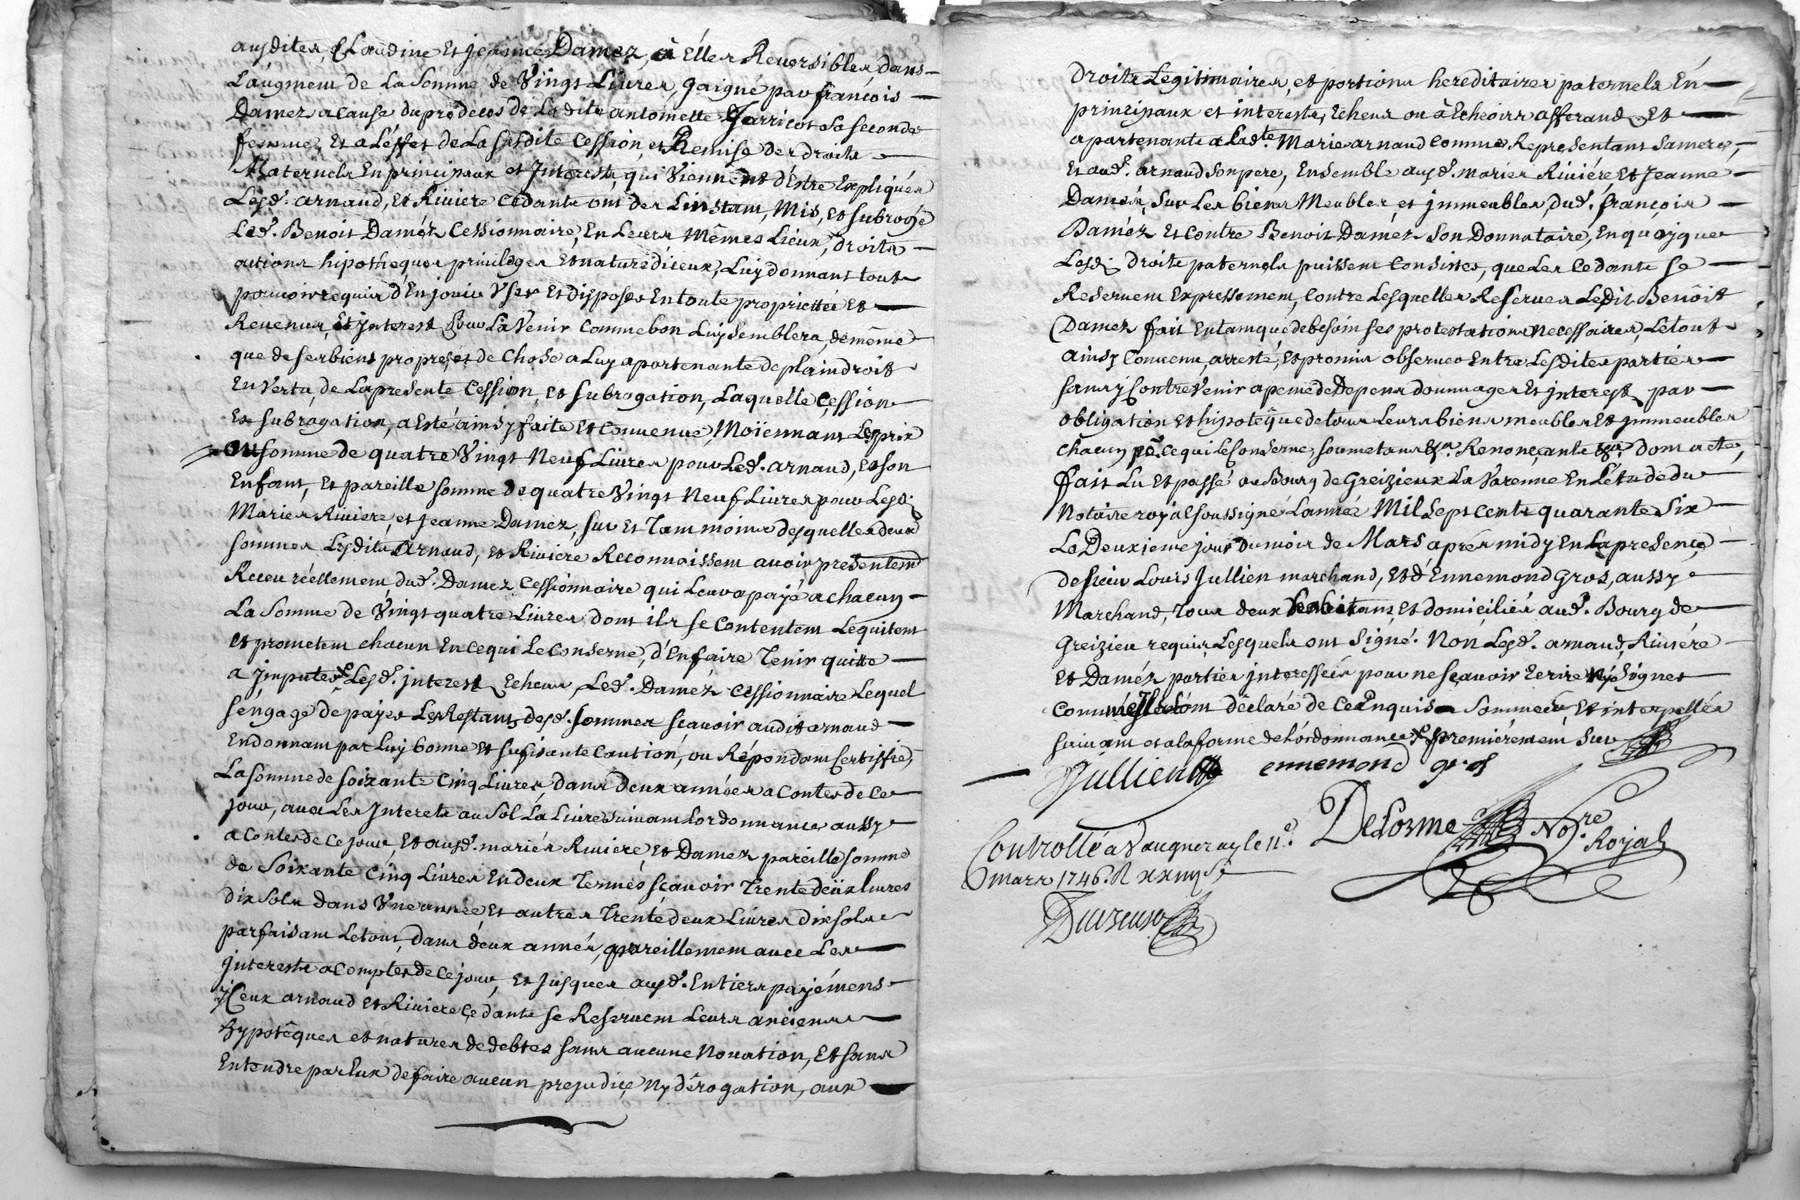 ausdites Claudine Et jeanne Damez à Elles Reversibles dans
L'augment de La Somme de Vingt Livres, gaigné par françois
Damez acause du prédeces de La dite antoinette Jarricot Sa seconde
femme, Et a L'effet de La susdite Cession, et Remise de droits
Maternels En principaux et Interests, qui Viennent d'Estre Expliqués
Lesd. arnaud, Et Riviere Cedants ont des L'instant, Mis, et subrogé
Led. Benoit Daméz Cessionnaire, En Leurs Mêmes Lieux, droits
actions hipotheques privileges Et nature diceux, Luy donnant tout
pouvoir requis d'En jouir Vser Et disposer En toute proprietté Et
Revenus, Et jnterest pour La Venir Comme bon Luy semblera, de même
que de ses biens propres, et de Chose a Luy apartenante de plain droit
En Vertu, de La presente Cession, et subrogation, Laquelle Cession
Et subrogation, a Esté ainsy faite Et Convenue, Moïennant Le prix
ou somme de quatre Vingt Neuf Livres pour Led. arnaud, Et son
Enfant, Et pareille somme de quatre Vingt Neuf Livres pour Lesd.
Mariés Riviere, et jeanne Damez, sur Et Tant moins desquelles deux
sommes Lesdits Arnaud, et Riviere Reconnoissent avoir presentemt
Receu réellement dud. Damez Cessionnaire qui Leur a payé a chacun
La Somme de Vingt quatre Livres dont ils se Contentent Lequitent
et prometent chacun En ce qui Le Conserne, d'En faire Tenir quitte
a jmputer Lesd. jnterest Echeus Led. Daméz Cessionnaire Lequel
s'engage de payer Les Restants desd. sommes scavoir audit arnaud
En donnant par Luy bonne Et sufisante Caution, ou Répondant Sertiffié,
La somme de soixante Cinq Livres, dans deux années a Conter de Ce
jour, avec Les Interets au Sol La Livre suivant Lordonnance aussy
a Conter de Ce jour Et ausd. mariés Riviere, Et Damez pareille somme
de Soixante Cinq Livres En deux Termes scavoir Trente deux Livres
dix sols dans Vne année Et autres Trente deux Livres dix sols
parfaisant Le tout, dans deux années, pareillement avec Les
jnterests a Compter de Ce jour, et jusques ausd. Entiers payémens
jCeux arnaud Et Riviere Cedants se Reservent Leurs anciennes
hypotêques et natures de debtes sans aucune Novation, Et sans
Entendre par Eux de faire aucun prejudice Ny dérogation, aux
droits Legitimaires, et portions hereditaires paternels En
principaux et interests, Echeus ou à Echeoirs afferand Et
apartenants a Ladte. Marie arnaud Comme Representant sa mere,
Et aud. arnaud son pere, Ensemble ausd. mariés Riviére Et Jeanne
Damés, Sur Les biens Meubles et jmmeubles dud. françois
Daméz Et Contre Benoit Daméz Son Donnataire, En quoy que
Lesd. droits paternels puissent Consister, que Les Cedants se
Reservent Expressement, Contre Lesquelles Reserves Ledit Benoît
Damez fait En tant que de besoin ses protestations Necessaires, Le tout
ainsy Convenu, arresté, Et promis observer Entre Lesdites parties
sans y Contrevenir a peine de Depens dommages Et jnterest par
obligation Et hipoteque de tous Leurs biens meubles Et jmmeubles
chacun po. Ce qui Le Conserne, soumetants &a. Renonçants &a. dont acte,
fait Lu Et passé au Bourg de Greizieux La Varenne En L'étude du
Notaire royal soussigné L'année Mil sept cents quarante Six
Le Deuxieme jour du mois de Mars aprés midy En La presence
de sieur Louis Jullien marchand, Et d'Ennemond Gros, aussy
Marchand, Tous deux habitans, et domiciliés aud. Bourg de
Greizieu requis Lesquels ont signé. Non Lesd. arnaud, Riviére
Et Daméz parties jnteressées pour ne sçavoir Ecrire Ny Signer
comme ils ont déclaré de Ce Enquis Sommés, Et interpellés
suivant et a la forme de L'ordonnance premiérement sur
Jullien ennemond gros
Delorme Nore. Royal
Controllé a Vaugneray le 11e.
mars 1746. R xxiiij s.